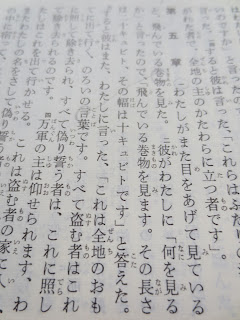 と彼は言った、「これらはふたり
られた者で、全地の主のかたわらに立つ者です」。
第五章 わたしがまた目をあげて見ている
と、飛んでいる巻物を見た。 二彼がわたしに「何を見る
か」と言ったので、「飛んでいる巻物を見ます。その長さ
は二十キュビト、その幅は十キュビトです」と答えた。
すると彼はまた、わたしに言った、「これは全地のおも
に出て行く、のろいの言葉です。すべて盗む者はこれ
て除き去られ、すべて偽り誓う者は、これに照し
除き去られ 四万軍の主は仰せられます、わ
たしはこれを出て行かせる。これは盗む者の家に入
わたしの名をさして偽り誓う